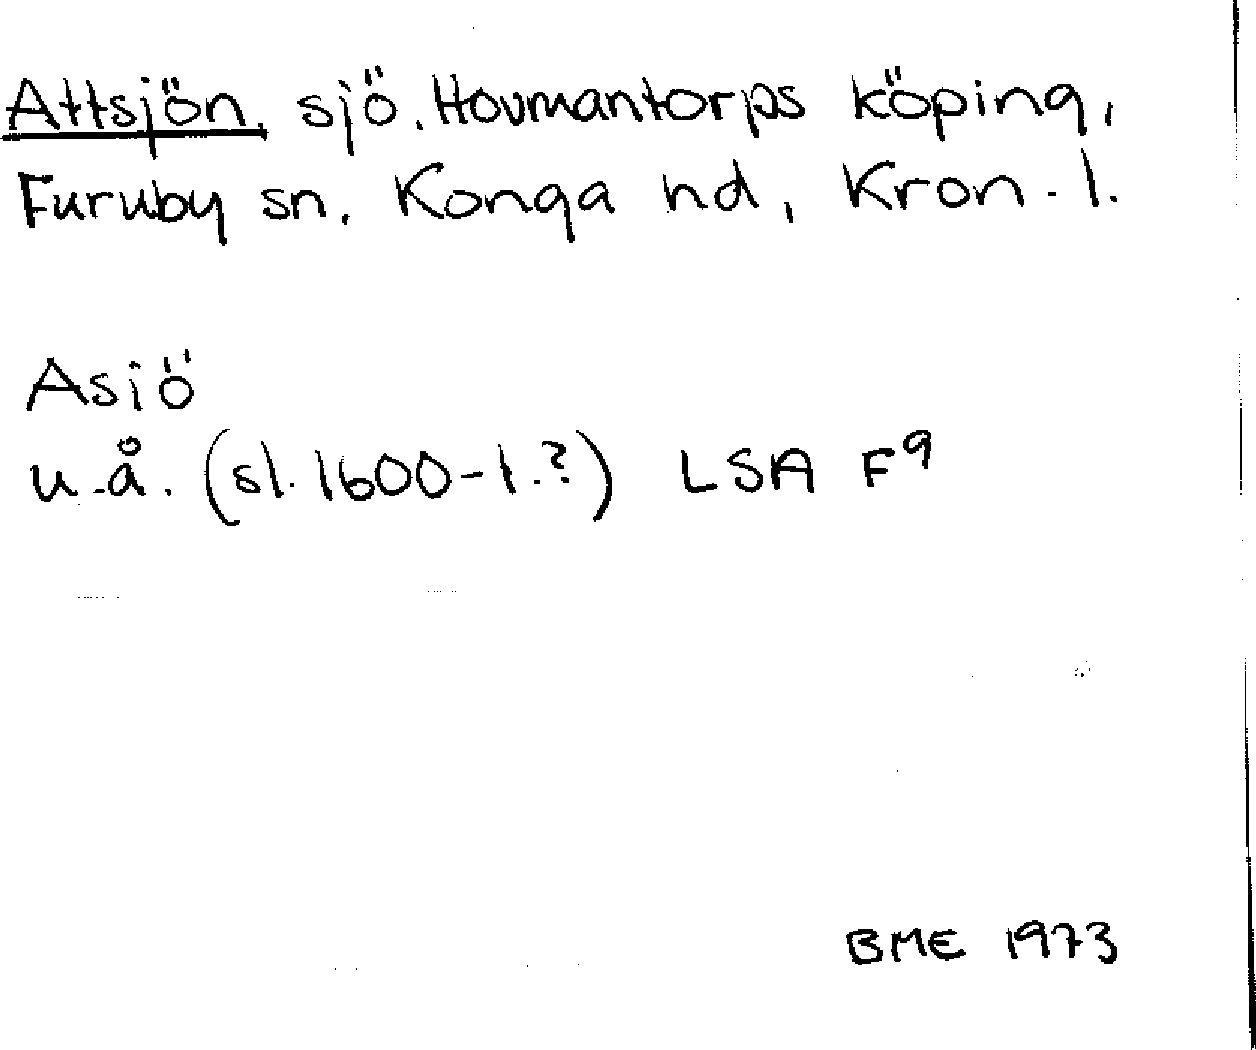 Attsjön, sjö. Hovmantorps köping,
Furuby sn. Konga hd, Kron.l.
Asiö
u.å. (sl. 1600-t.?) LSA F9
BME 1973